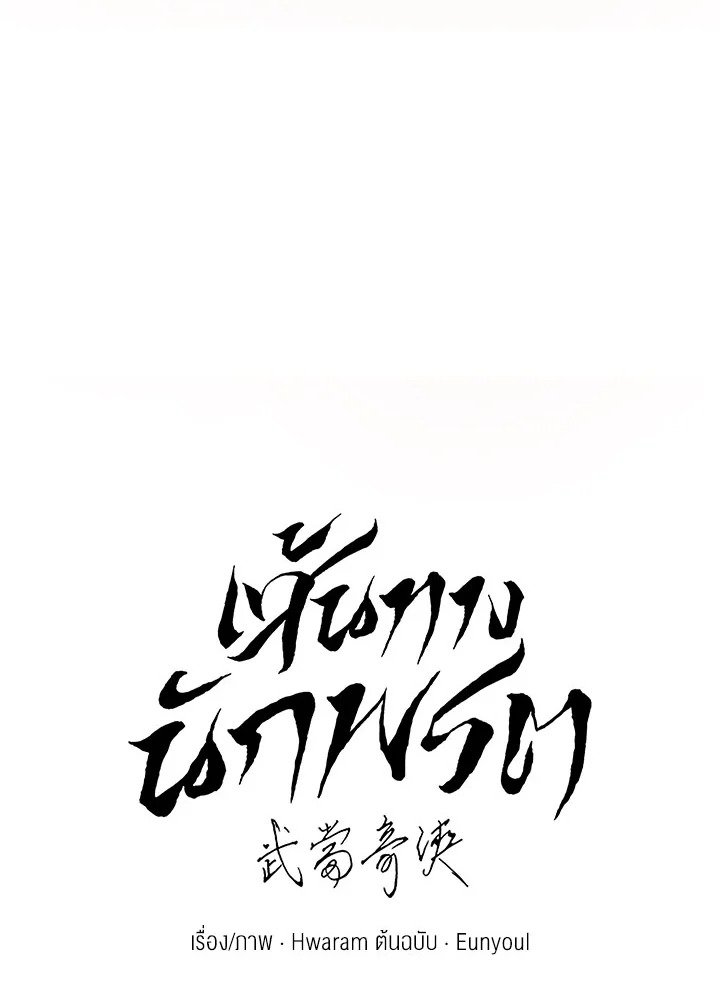 เส้นทาง
นักพรต
武當奇俠
เรื่อง/ภาพ · Hwaram ต้นฉบับ · Eunyoul